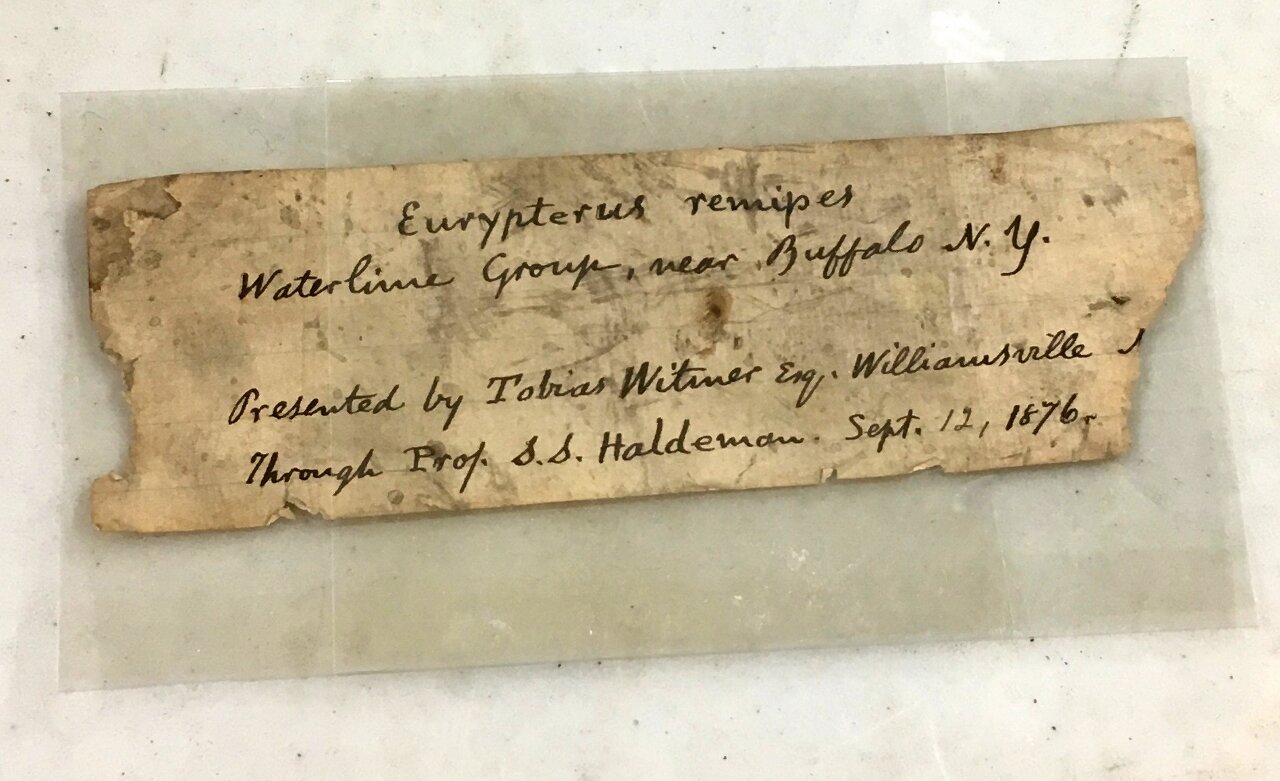 Eurypterus remipes
Waterlime Group, near Buffalo N. Y.
Presented by Tobias Witmer Esq. Williamsville
Through Prof. S. S. Haldeman. Sept. 12, 1876.